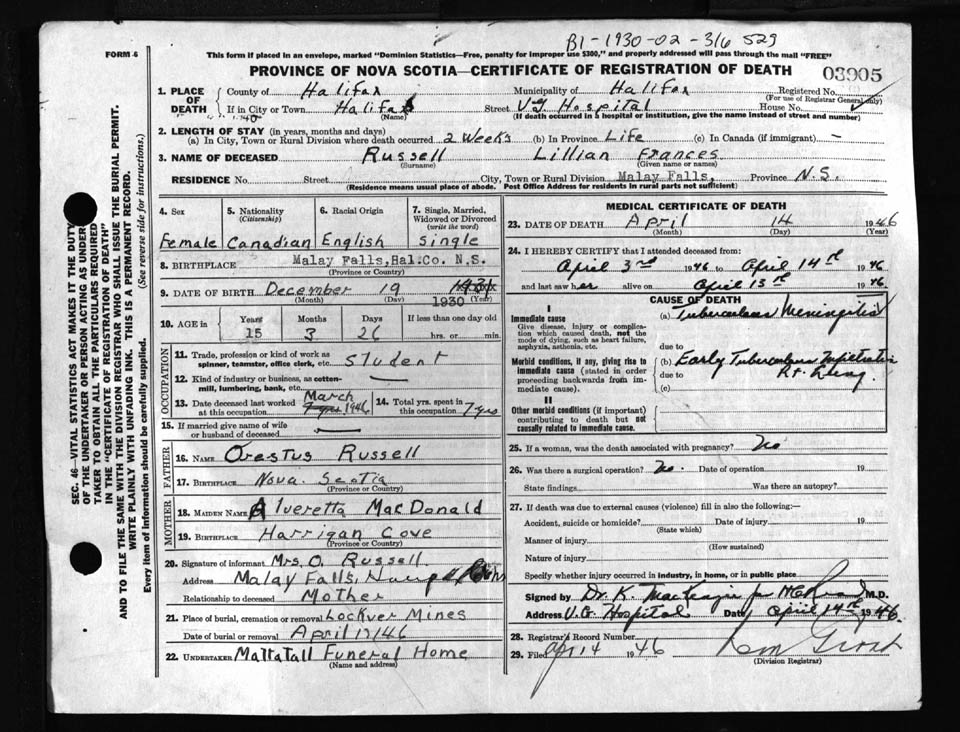 B1-1930-02-316 523
FORM 6
This form if placed in an envelope, marked "Dominion Statistics—Free, penalty for improper use $300," and properly addressed will pass through the mail "FREE"
PROVINCE OF NOVA SCOTIA—CERTIFICATE OF REGISTRATION OF DEATH
03905
1. PLACE OF DEATH County of Halifax Municipality of Halifax Registered No.
(For use of Registrar General only)
If in City or Town Halifax Street VG Hospital House No.
(Name) (If death occurred in a hospital or institution, give the name instead of street and number)
2. LENGTH OF STAY (in years, months and days)
(a) In City, Town or Rural Division where death occurred 2 Weeks (b) In Province Life (c) In Canada (if immigrant) —
3. NAME OF DECEASED Russell Lillian Frances
(Surname) (Given name or names)
RESIDENCE No. Street City, Town or Rural Division Malay Falls, Province N.S.
(Residence means usual place of abode. Post Office Address for residents in rural parts not sufficient)
4. Sex 5. Nationality (Citizenship) 6. Racial Origin 7. Single, Married, Widowed or Divorced (write the word)
Female Canadian English Single
8. BIRTHPLACE Malay Falls, Hal. Co. N.S.
(Province or Country)
9. DATE OF BIRTH December 19 1931
(Month) (Day) 1930 (Year)
10. AGE in Years Months Days If less than one day old
15 3 26 hrs. or min.
OCCUPATION
11. Trade, profession or kind of work as spinner, teamster, office clerk, etc. Student
12. Kind of industry or business, as cotton-mill, lumbering, bank, etc. —
13. Date deceased last worked at this occupation March 1946 14. Total yrs. spent in this occupation 7 yrs
15. If married give name of wife or husband of deceased —
FATHER
16. Name Orestus Russell
17. BIRTHPLACE Nova Scotia
(Province or Country)
MOTHER
18. MAIDEN NAME Alveretta MacDonald
19. BIRTHPLACE Harrigan Cove
(Province or Country)
20. Signature of informant Mrs. O. Russell
Address Malay Falls,
Relationship to deceased Mother
21. Place of burial, cremation or removal Lockver Mines
Date of burial or removal April 17/46
22. UNDERTAKER Mattatall Funeral Home
(Name and address)
MEDICAL CERTIFICATE OF DEATH
23. DATE OF DEATH April 14 1946
(Month) (Day) (Year)
24. I HEREBY CERTIFY that I attended deceased from:
April 3rd 1946 to April 14th 1946
and last saw her alive on April 13th 1946
CAUSE OF DEATH
I
Immediate cause (a) Tuberculous Meningitis
Give disease, injury or complication which caused death, not the mode of dying, such as heart failure, asphyxia, asthenia, etc.
due to
Morbid conditions, if any, giving rise to immediate cause (stated in order proceeding backwards from immediate cause).
(b) Early Tuberculous Infiltration
due to Rt. Lung.
(c)
II
Other morbid conditions (if important) contributing to death but not causally related to immediate cause.
25. If a woman, was the death associated with pregnancy? No
26. Was there a surgical operation? No. Date of operation 19
State findings Was there an autopsy?
27. If death was due to external causes (violence) fill in also the following:—
Accident, suicide or homicide? Date of injury 19
(State which)
Manner of injury
(How sustained)
Nature of injury
Specify whether injury occurred in industry, in home, or in public place
Signed by Dr. K. MacKenzie per M.D.
Address V.G. Hospital Date April 14th 1946.
28. Registrar's Record Number
29. Filed Apr 14 1946
(Division Registrar)
SEC. 46—VITAL STATISTICS ACT MAKES IT THE DUTY
OF THE UNDERTAKER OR PERSON ACTING AS UNDER-
TAKER TO OBTAIN ALL THE PARTICULARS REQUIRED
IN THE "CERTIFICATE OF REGISTRATION OF DEATH"
AND TO FILE THE SAME WITH THE DIVISION REGISTRAR WHO SHALL ISSUE THE BURIAL PERMIT.
WRITE PLAINLY WITH UNFADING INK. THIS IS A PERMANENT RECORD.
Every item of Information should be carefully supplied. (See reverse side for instructions.)